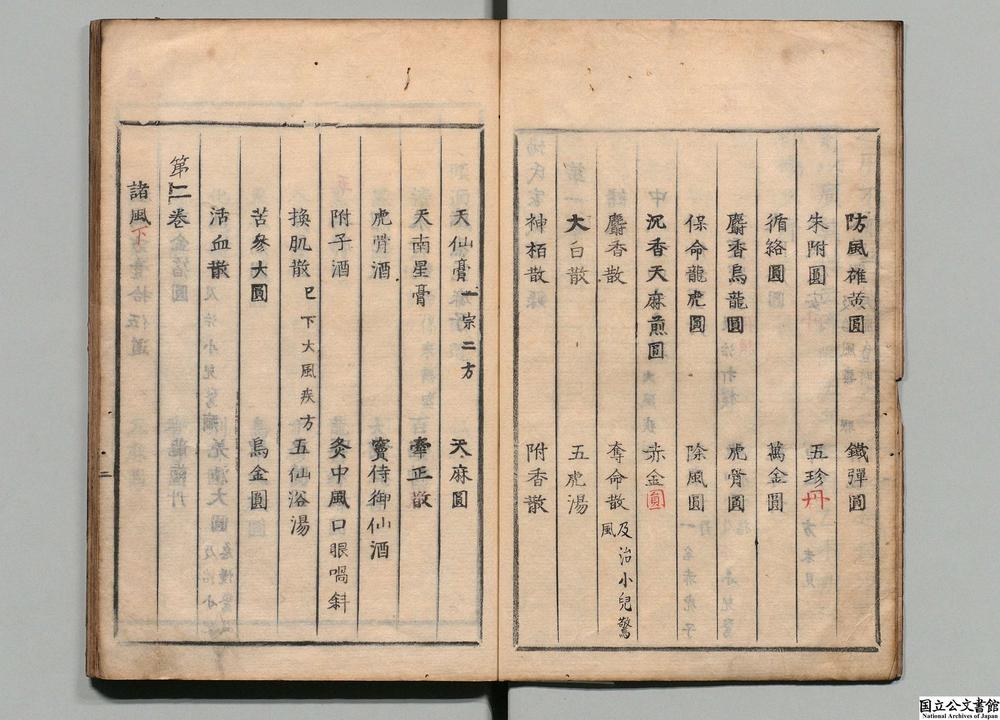 防風雄黄圓 鐵彈圓
朱附圓 五珍丹
循絡圓 萬金圓
麝香烏龍圓 虎骨圓
保命龍虎圓 除風圓
沉香天麻煎圓 赤金圓
麝香散 奪命散 及治小兒驚風
大白散 五虎湯
神栢散 附香散
天仙膏 一宗二方 天麻圓
天南星膏 牽正散
虎骨酒 竇侍御仙酒
附子酒 灸中風口眼喎斜
換肌散 已下大風疾方 五仙浴湯
苦參大圓 烏金圓
活血散
第二卷
諸風下
二
国立公文書館
National Archives of Japan